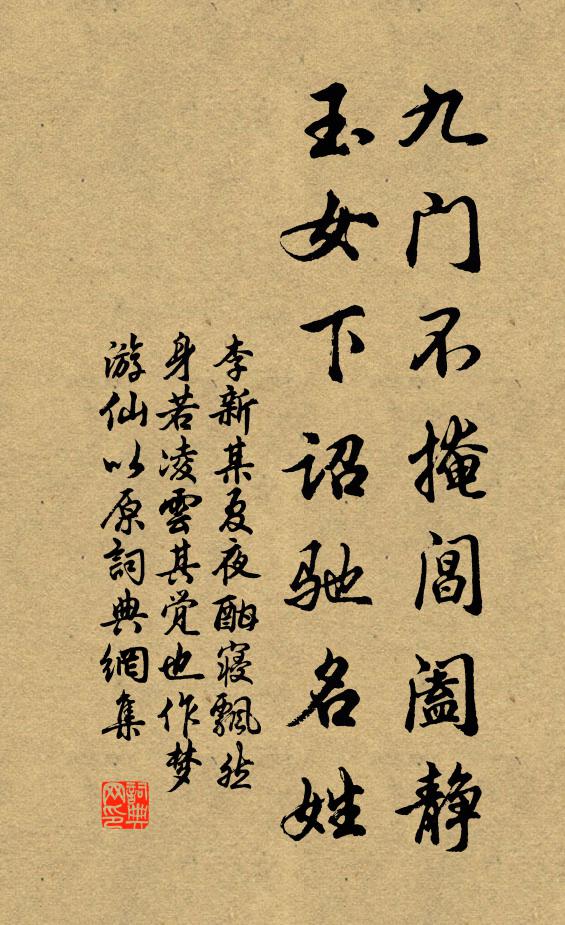 九门不掩阊阖静
玉女下诏驰名姓
李新某夏夜酣寝飘然
身若凌雲其觉也作梦
游仙以原詞典網集
詞典网印